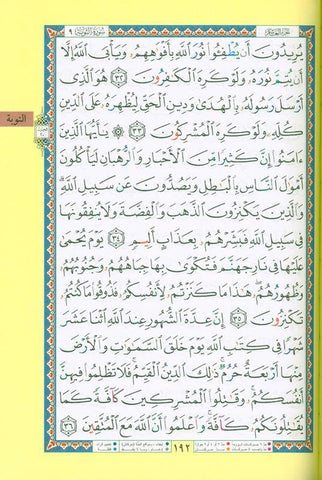 سورة التوبة ٩
الجزء العاشر
يُرِيدُونَ أَن يُطْفِـُٔوا۟ نُورَ ٱللَّهِ بِأَفْوَٰهِهِمْ وَيَأْبَى ٱللَّهُ إِلَّآ
أَن يُتِمَّ نُورَهُۥ وَلَوْ كَرِهَ ٱلْكَٰفِرُونَ ٣٢ هُوَ ٱلَّذِىٓ
أَرْسَلَ رَسُولَهُۥ بِٱلْهُدَىٰ وَدِينِ ٱلْحَقِّ لِيُظْهِرَهُۥ عَلَى ٱلدِّينِ
كُلِّهِۦ وَلَوْ كَرِهَ ٱلْمُشْرِكُونَ ٣٣ ۞ يَٰٓأَيُّهَا ٱلَّذِينَ
ءَامَنُوٓا۟ إِنَّ كَثِيرًا مِّنَ ٱلْأَحْبَارِ وَٱلرُّهْبَانِ لَيَأْكُلُونَ
أَمْوَٰلَ ٱلنَّاسِ بِٱلْبَٰطِلِ وَيَصُدُّونَ عَن سَبِيلِ ٱللَّهِ ۗ
وَٱلَّذِينَ يَكْنِزُونَ ٱلذَّهَبَ وَٱلْفِضَّةَ وَلَا يُنفِقُونَهَا
فِى سَبِيلِ ٱللَّهِ فَبَشِّرْهُم بِعَذَابٍ أَلِيمٍ ٣٤ يَوْمَ يُحْمَىٰ
عَلَيْهَا فِى نَارِ جَهَنَّمَ فَتُكْوَىٰ بِهَا جِبَاهُهُمْ وَجُنُوبُهُمْ
وَظُهُورُهُمْ ۖ هَٰذَا مَا كَنَزْتُمْ لِأَنفُسِكُمْ فَذُوقُوا۟ مَا كُنتُمْ
تَكْنِزُونَ ٣٥ إِنَّ عِدَّةَ ٱلشُّهُورِ عِندَ ٱللَّهِ ٱثْنَا عَشَرَ
شَهْرًا فِى كِتَٰبِ ٱللَّهِ يَوْمَ خَلَقَ ٱلسَّمَٰوَٰتِ وَٱلْأَرْضَ
مِنْهَآ أَرْبَعَةٌ حُرُمٌ ۚ ذَٰلِكَ ٱلدِّينُ ٱلْقَيِّمُ ۚ فَلَا تَظْلِمُوا۟ فِيهِنَّ
أَنفُسَكُمْ ۚ وَقَٰتِلُوا۟ ٱلْمُشْرِكِينَ كَآفَّةً كَمَا
يُقَٰتِلُونَكُمْ كَآفَّةً ۚ وَٱعْلَمُوٓا۟ أَنَّ ٱللَّهَ مَعَ ٱلْمُتَّقِينَ ٣٦
التوبة
١٩٢